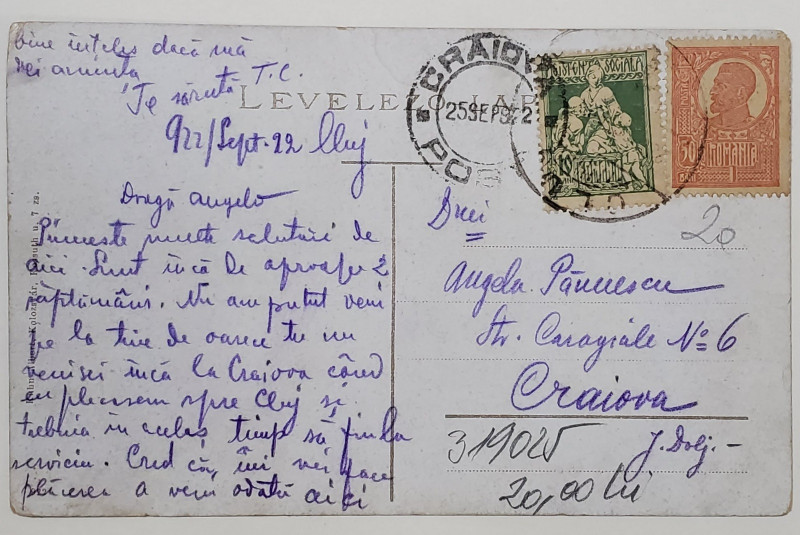 bine înțeles dacă mă
vei aminta
Te sărută T.C.
LEVELEZŐ-LAP
922/Sept. 22 Cluj
Dragă Angelo
Primește multe salutări de
aici. Sunt încă de aproape 2
săptămâni. Nu am putut veni
pe la tine de oarece tu nu
venisei încă la Craiova când
eu plecasem spre Cluj și
trebuia în același timp să fiu la
serviciu. Cred că, îmi vei face
plăcerea a veni odată aici
CRAIOVA
25 SEP 922
ASISTENȚA SOCIALA
10
50
ROMANIA
20
Drei
Angela Pănuescu
Str. Caragiale No 6
Craiova
J. Dolj.-
319025
20,00 lei
Kolozsvár, Kossuth u. 7 sz.